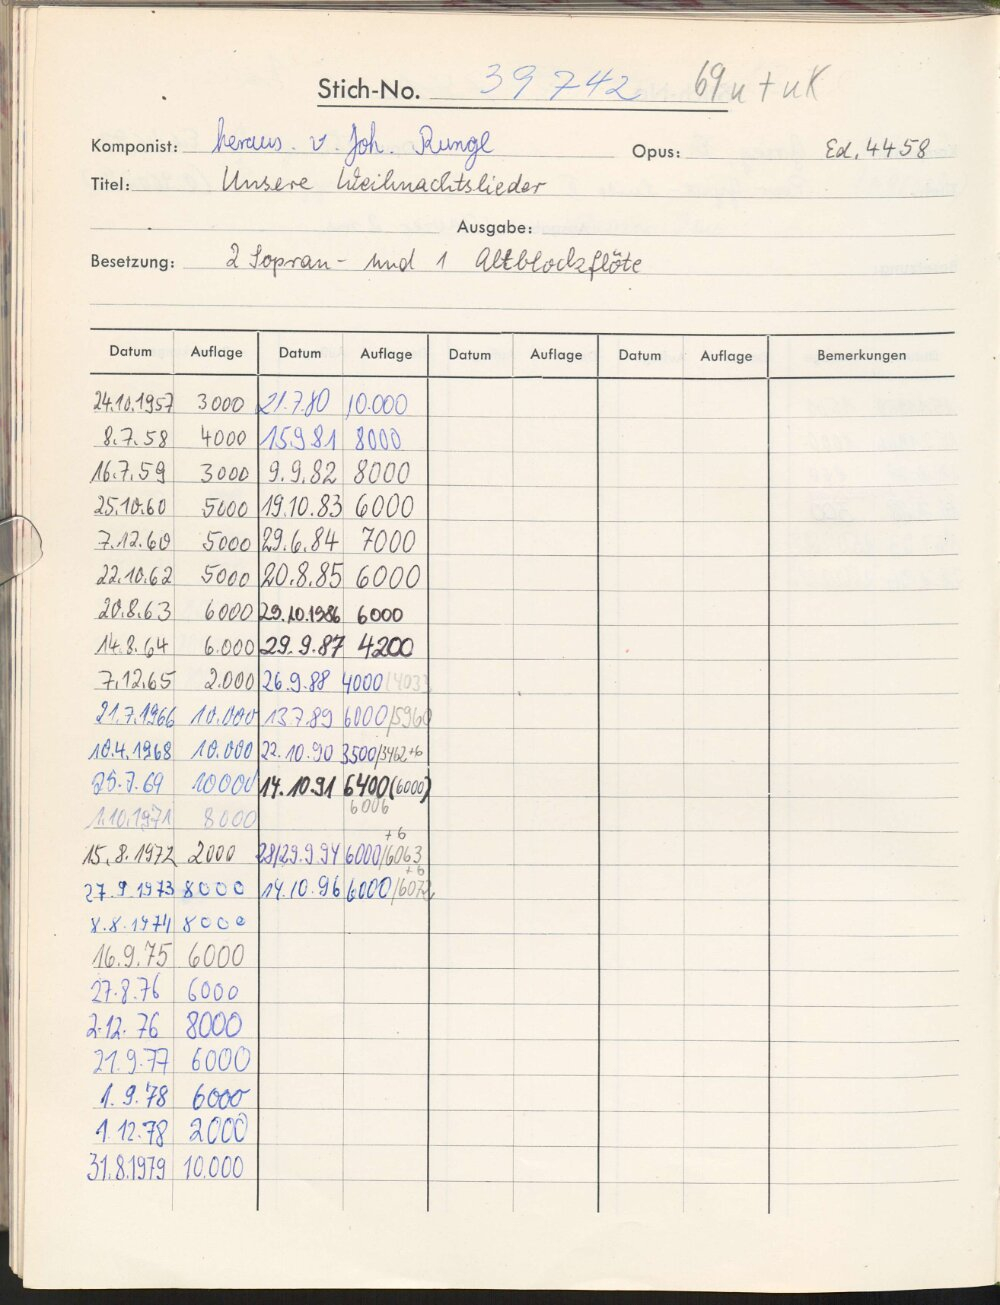 Stich-No. 39742 69 u + uK
Komponist: heraus. v. Joh. Runge
Opus: Ed. 4458
Titel: Unsere Weihnachtslieder
Ausgabe:
Besetzung: 2 Sopran- und 1 Altblockflöte
Datum Auflage Datum Auflage Datum Auflage Datum Auflage Bemerkungen
24.10.1957 3000 21.7.80 10.000
8.7.58 4000 15.9.81 8000
16.7.59 3000 9.9.82 8000
25.10.60 5000 19.10.83 6000
7.12.60 5000 29.6.84 7000
22.10.62 5000 20.8.85 6000
20.8.63 6000 29.10.1986 6000
14.8.64 6.000 29.9.87 4200
7.12.65 2.000 26.9.88 4000/4033
21.7.1966 10.000 13.7.89 6000/5960
10.4.1968 10.000 22.10.90 3500/3462+6
25.7.69 10000 14.10.91 6400(6000)
6006
1.10.1971 8000
+6
15.8.1972 2000 28/29.9.94 6000/6063
+6
27.9.1973 8000 14.10.96 6000/6072
8.8.1974 8000
16.9.75 6000
27.8.76 6000
2.12.76 8000
21.9.77 6000
1.9.78 6000
1.12.78 2000
31.8.1979 10.000